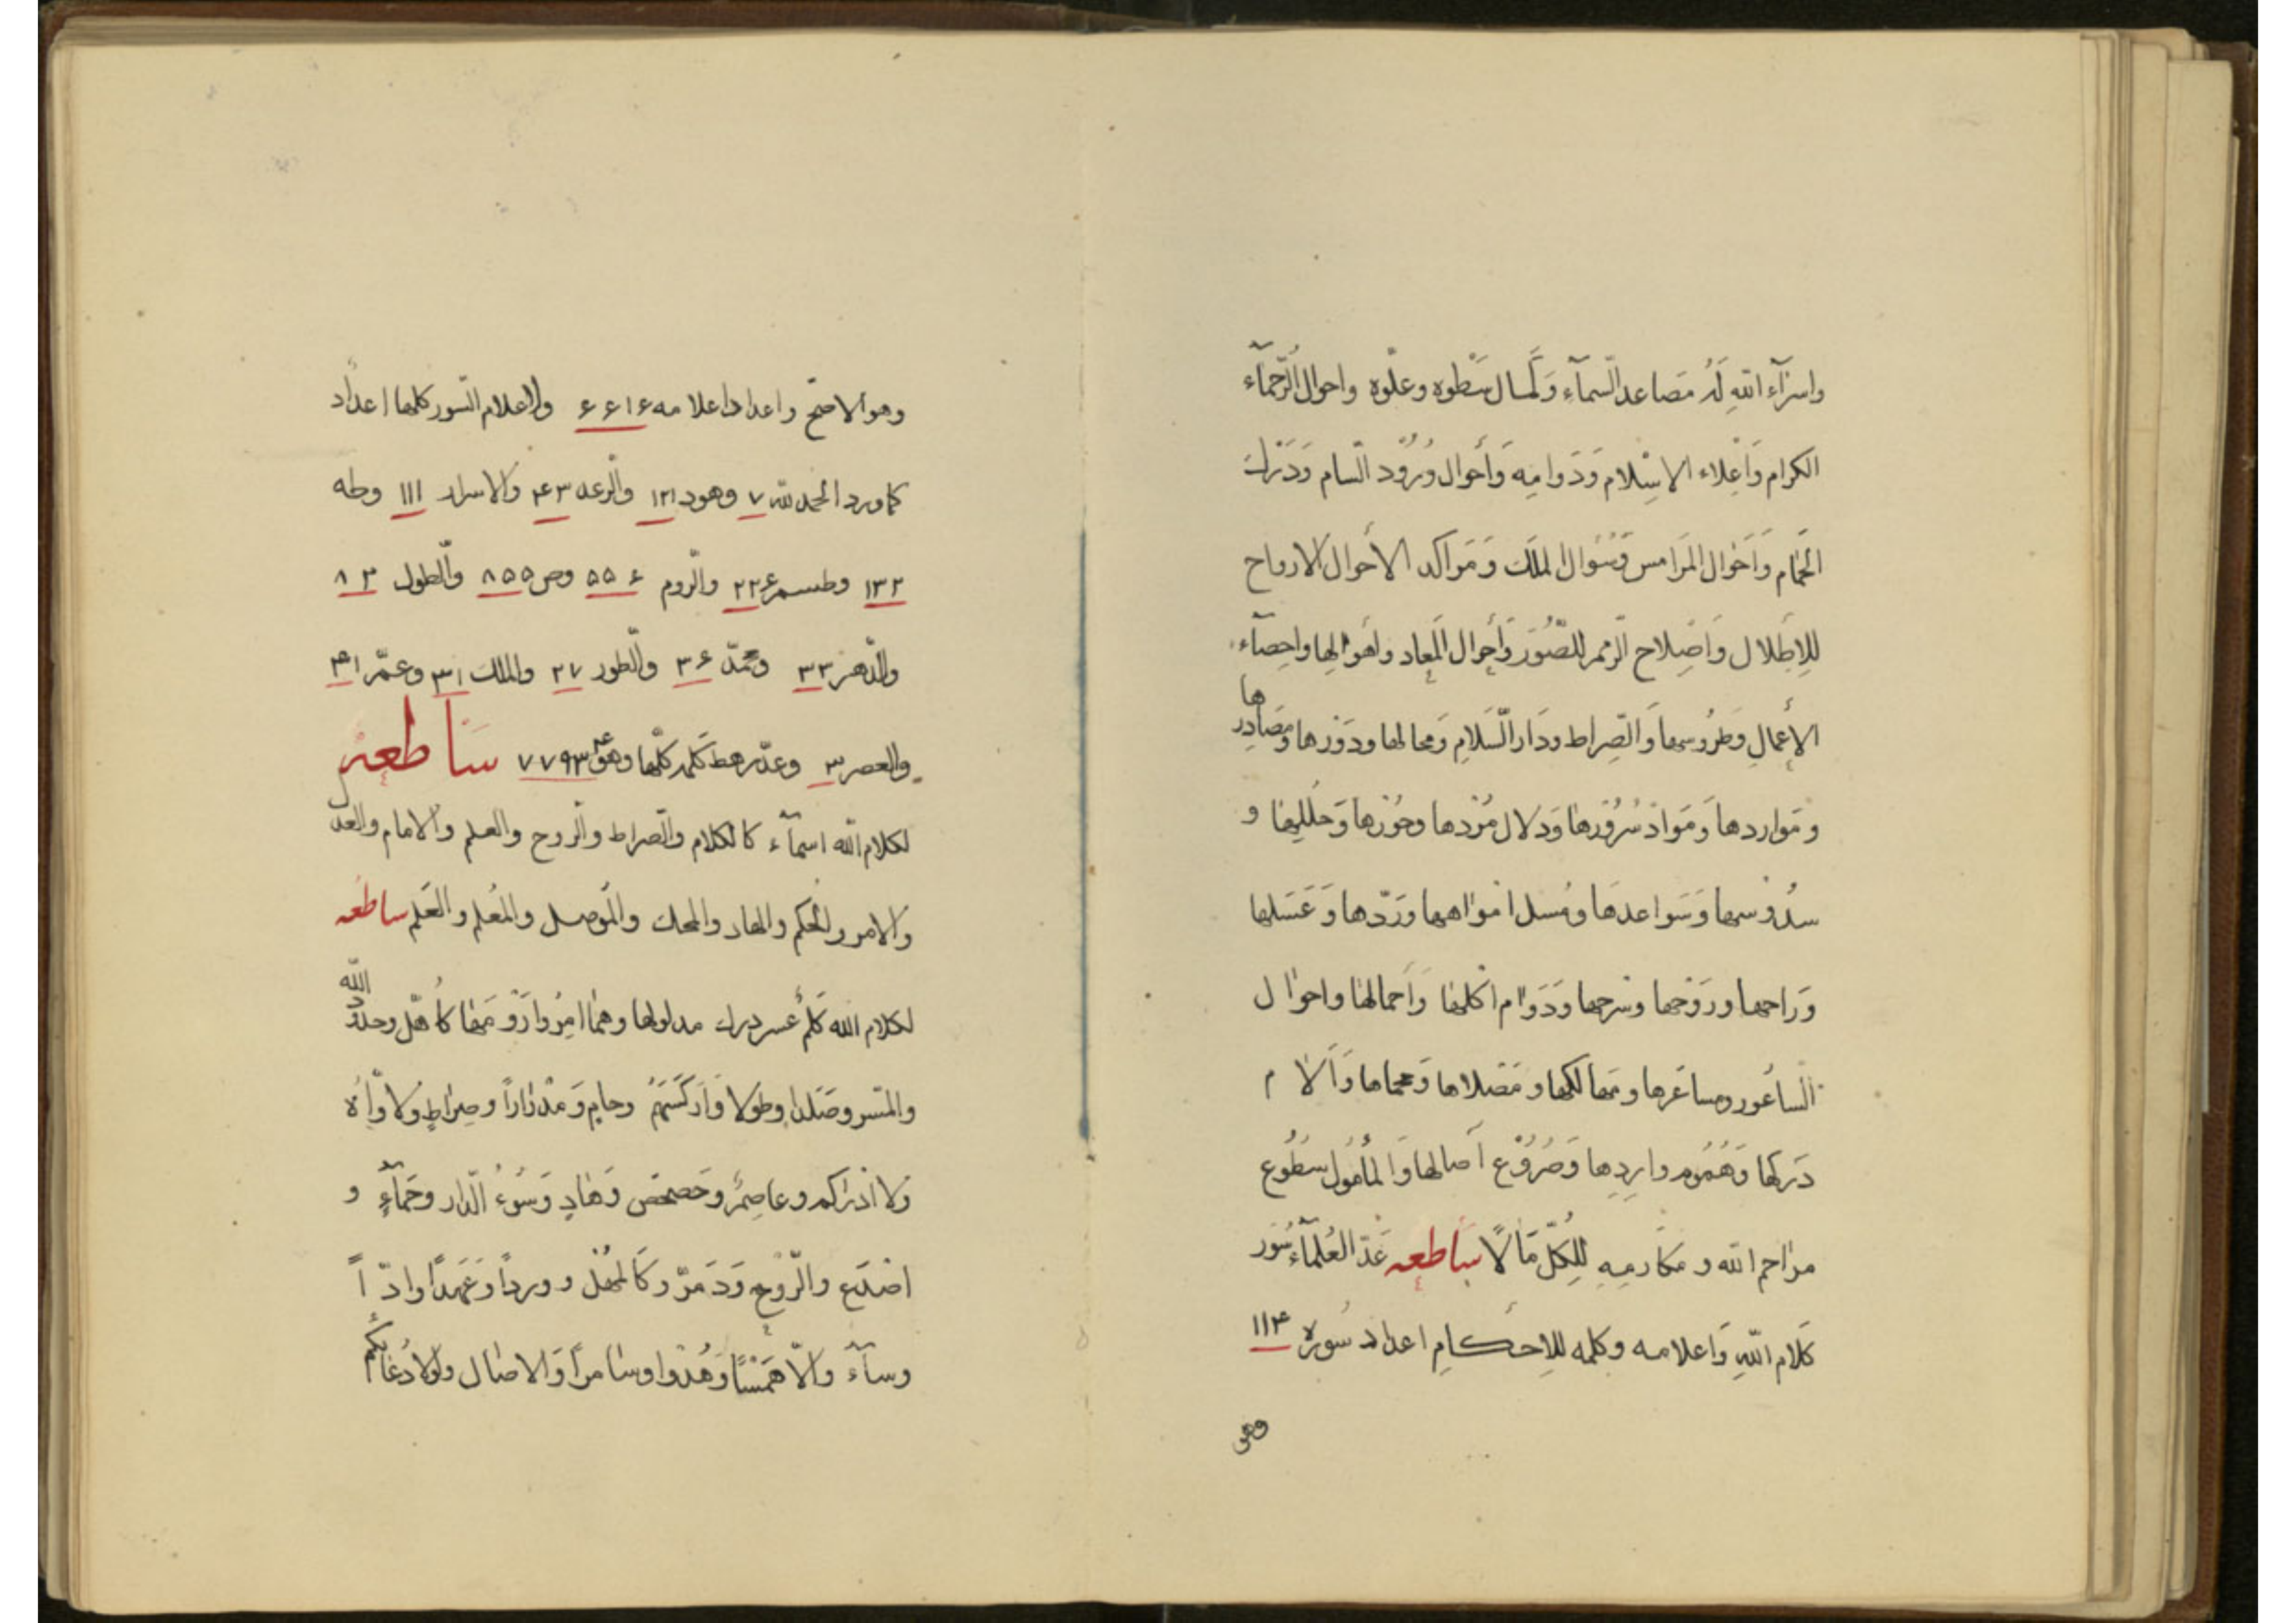 واسرآء الله له مصاعد السمآء وكمال سطوه وعلوه واحوال الرحمآء
الكرام واعلاء الاسلام ودوامه وأحوال ورود السام ودرك
الحمام وأحوال المرامس وسؤال الملك ومراكد الأحوال الارواح
للاطلال واصلاح الرمم للصور وأحوال المعاد واهوالها واحصآء
الأعمال وطروسها والصراط ودار السلام ومحالها ودورها ومصادرها
ومواردها ومواد سرورها ودلال مردها وحورها وحللها و
سدوسها وسواعدها ومسل امواهها ورورّدها وعسلها
وراحها وروحها وسرحها ودوام اكلها وأحمالها واحوال
الساعور ومساعرها ومهالكها ومصلاها وحماها وآلام
دركها وهموم واردها وصروع آصالها والمأمول سطوع
مراحم الله ومكارمه للكل مآلاً ساطعه عد العلمآء سور
كلام الله واعلامه وكلمه للاحكام اعداد سوره ۱۱۴
وهو
وهو الاصح واعداد اعلامه ۶۶۱۶ والاعلام السور كلها اعداد
كما ورد الحمد لله ۷ وهود ۱۲۱ والرعد ۴۳ والاسراء ۱۱۱ وطه
۱۳۲ وطسم ۲۲۶ والروم ۵۵۶ وص ۸۵۵ والطول ۸۳
والدهر ۳۳ ومحمد ۳۶ والطور ۲۷ والملك ۳۱ وعم ۴۱
والعصر ۳ وعد رهط كلمه كلها وهو ۷۷۹۴۳ ساطعه
لكلام الله اسمآء كالكلام والصراط والروح والعلم والامام والعدل
والامر والحكم والهاد والمحك والموصل والمعلم والعلم ساطعه
لكلام الله كلم عسر درك مدلولها وهما امروا روومها كاهل وحدود الله
والمس وصلدا وطولا واركسهم وحام ومدرارا وصراط ولاواه
ولا ادراكم وعاصم وحصحص وهاد وسوء الدار وحمآء و
اصدع والروح ودمر وكالمهل ووردا وعهدا وادّاً
وسآء والا همسا وهدوا وسامرا والاصال ولولا دعاؤكم